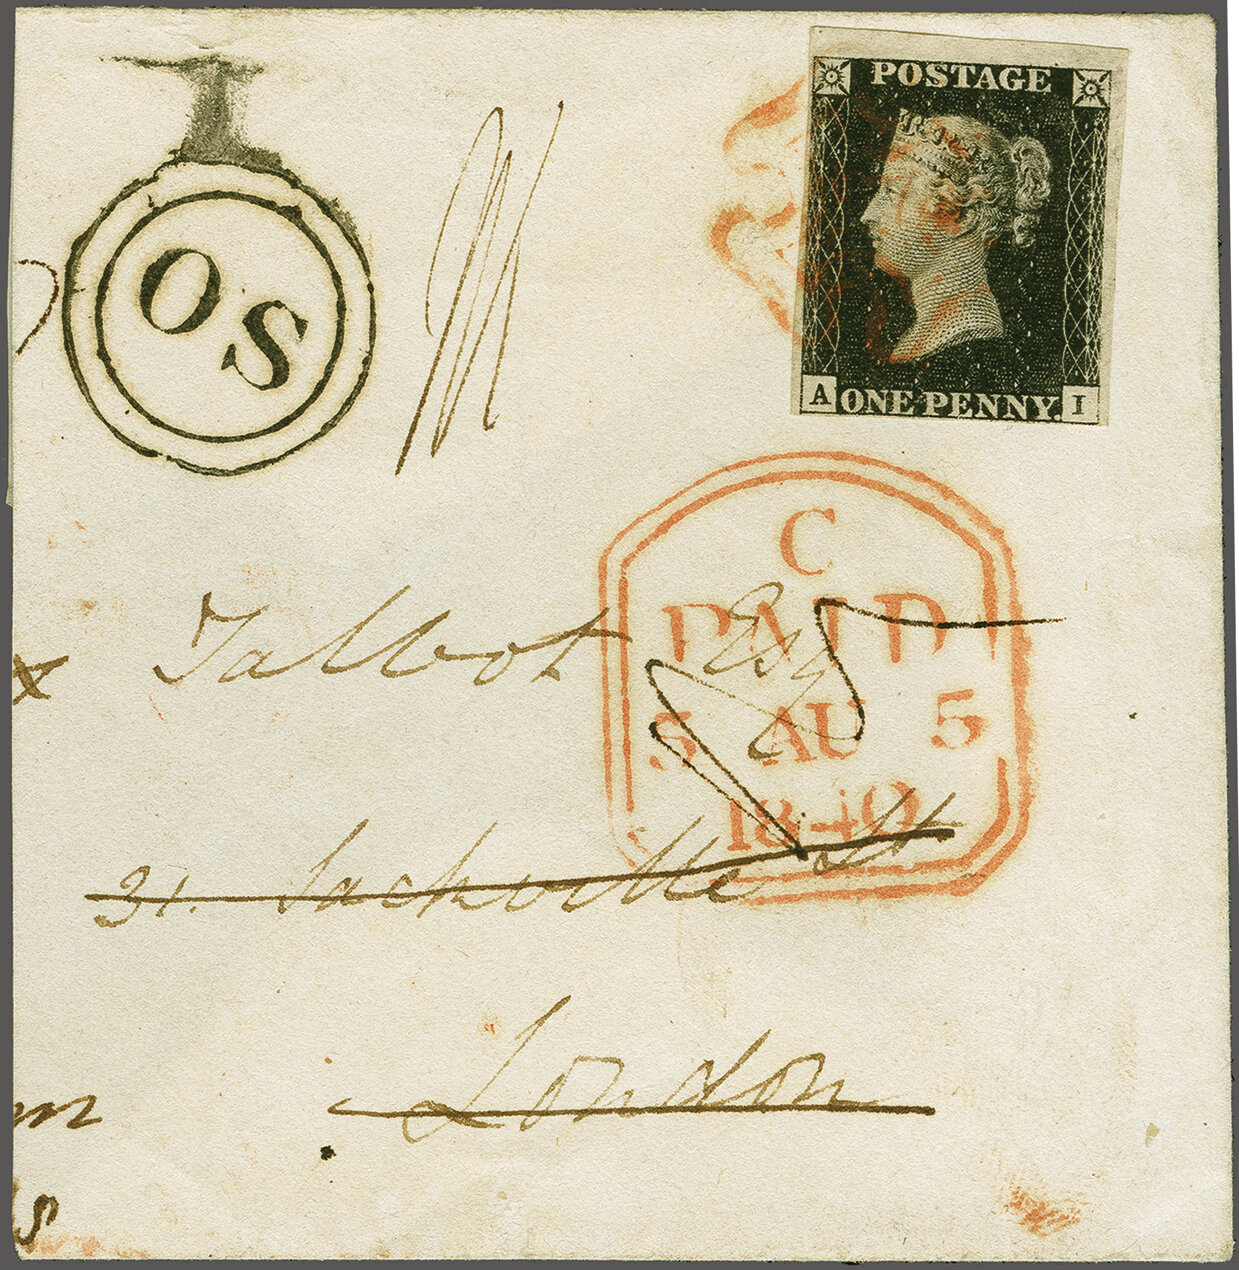 POSTAGE
A ONE PENNY. I
OS
C
PAID
5 AU 5
1840
x Talbot Esq
31. Sackville St
London
m
s